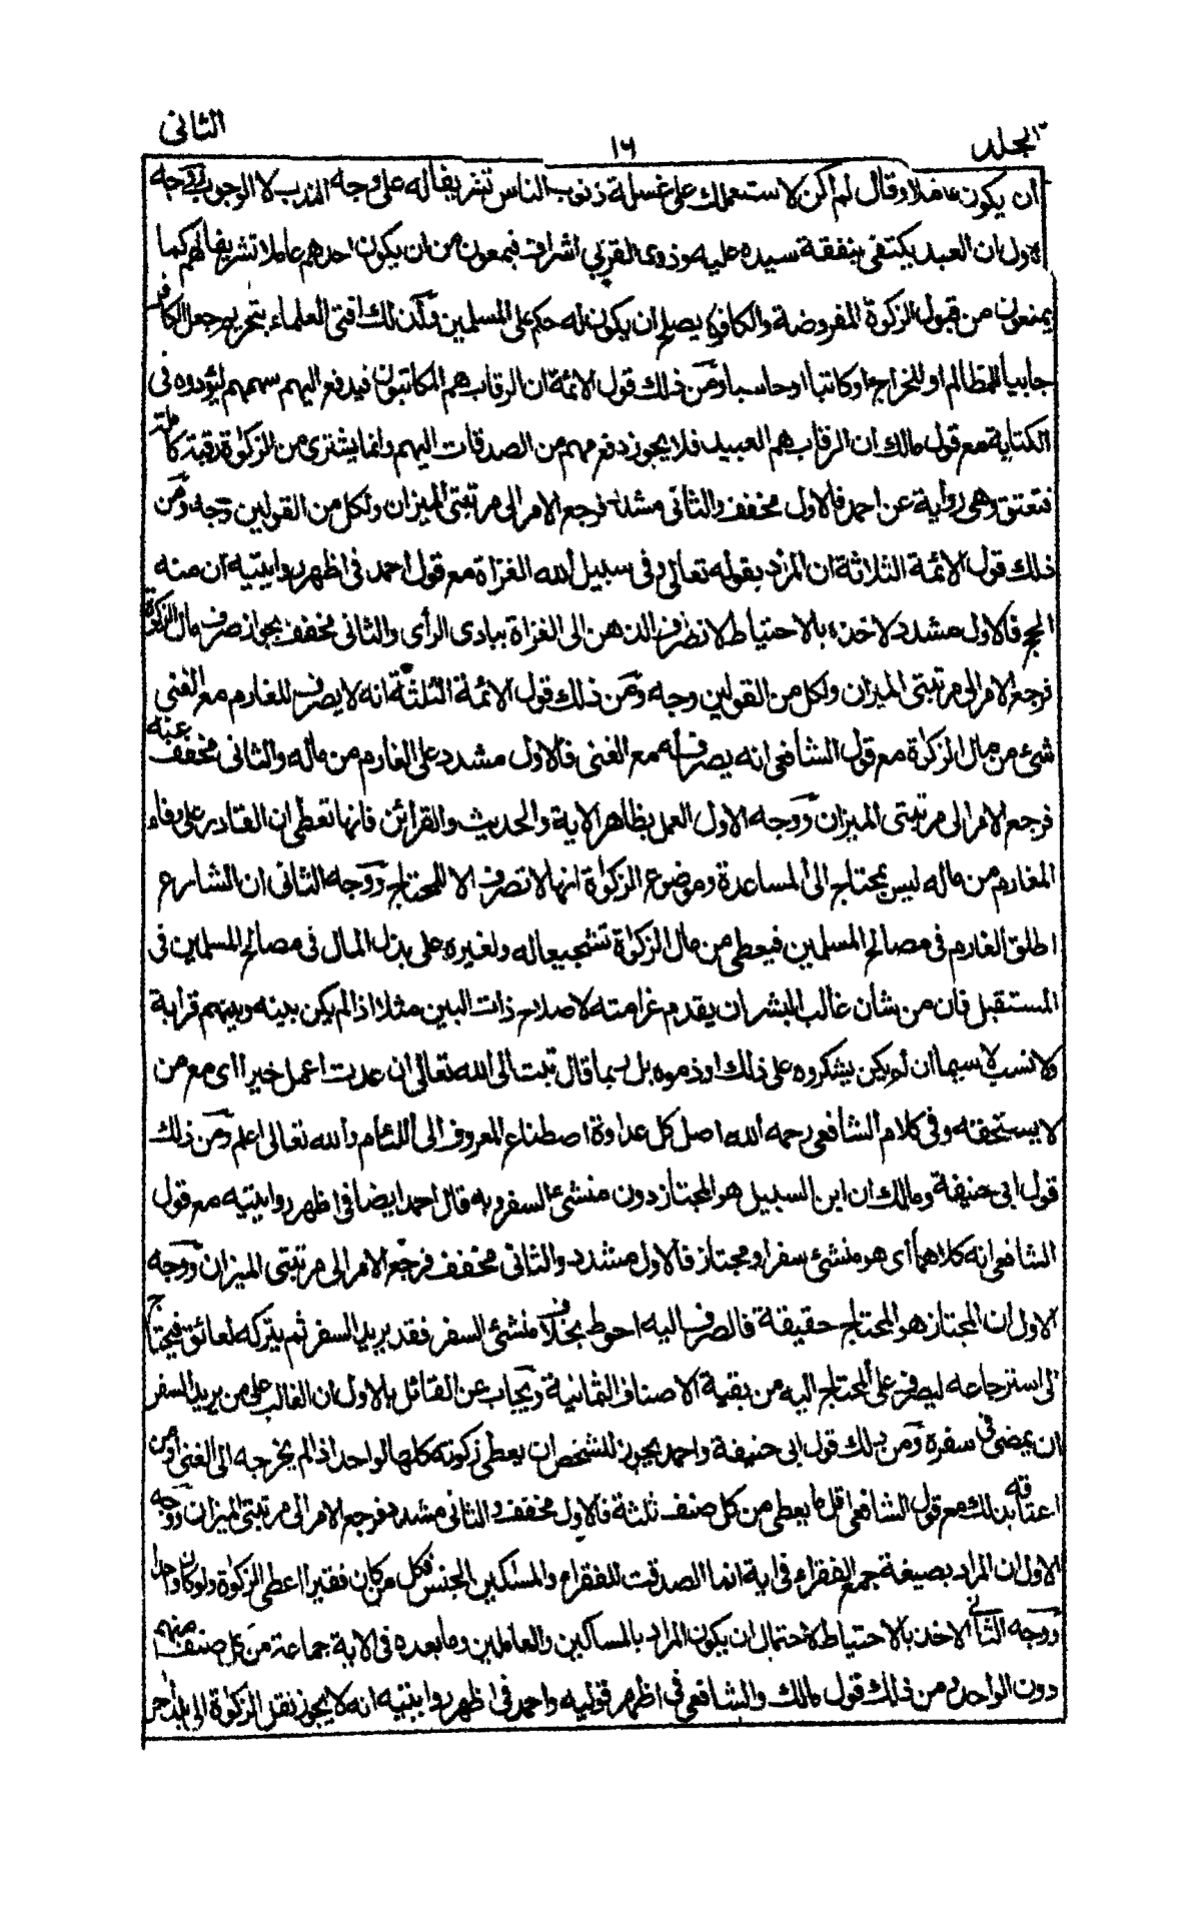 المجلد
١٦
الثانى
أن يكون عاملا وقال لم اكن لاستعملك على غسالة ذنوب الناس تشريفا له على وجه الندب لا الوجوب ووجه
الاول ان العبد يكتفى بنفقة سيده عليه وذوى القربى اشراف فيمنعون من ان يكون احدهم عاملا تشريفا لهم كما
يمنعون من قبول الزكوة المفروضة والكافر لا يصلح ان يكون له حكم على المسلمين ولذلك افتى العلماء بتحريم جعل الكافر
جابيا للمظالم او للخراج او كاتبا او حاسبا ومن ذلك قول الائمة ان الرقاب هم المكاتبون فيدفع اليهم سهمهم ليؤدوه فى
الكتابة مع قول مالك ان الرقاب هم العبيد فلا يجوز دفع سهم من الصدقات اليهم وانما يشترى من الزكوة رقبة كاملة
فتعتق وهى رواية عن احمد فالاول مخفف والثانى مشدد فرجع الامر الى مرتبتى الميزان ولكل من القولين وجه ومن
ذلك قول الائمة الثلاثة ان المراد بقوله تعالى وفى سبيل الله الغزاة مع قول احمد فى اظهر روايتيه ان منه
الحج فالاول مشدد لاخذه بالاحتياط لانصراف الذهن الى الغزاة ببادى الرأى والثانى مخفف بجواز صرف مال الزكوة
فرجع الامر الى مرتبتى الميزان ولكل من القولين وجه ومن ذلك قول الائمة الثلثة انه لا يصرف للغارم مع الغنى
شئ من مال الزكوة مع قول الشافعى انه يصرف له مع الغنى فالاول مشدد على الغارم من ماله والثانى مخفف عنه
فرجع الامر الى مرتبتى الميزان ووجه الاول العمل بظاهر الاية والحديث والقرائن فانها تعطى ان القادر على وفاء
المغارم من ماله ليس بمحتاج الى المساعدة وموضوع الزكوة انها لا تصرف الا للمحتاج ووجه الثانى ان الشارع
اطلق الغارم فى مصالح المسلمين فيعطى من مال الزكوة تشجيعا له ولغيره على بذل المال فى مصالح المسلمين فى
المستقبل فان من شأن غالب البشر ان يقدم غرامته لاصلاح ذات البين مثلا اذا لم يكن بينه وبينهم قرابة
ولا نسب لا سيما ان لم يكن يشكروه على ذلك او ذموه بل ربما قال تبت الى الله تعالى ان عدت اعمل خيرا اى مع من
لا يستحقه وفى كلام الشافعى رحمه الله اصل كل عداوة اصطناع المعروف الى اللئام والله تعالى اعلم ومن ذلك
قول ابى حنيفة ومالك ان ابن السبيل هو المجتاز دون منشئ السفر وبه قال احمد ايضا فى اظهر روايتيه مع قول
الشافعى انه كلاهما أى هو منشئ سفر او مجتاز فالاول مشدد والثانى مخفف فرجع الامر الى مرتبتى الميزان ووجه
الاول ان المجتاز هو المحتاج حقيقة فالصرف اليه احوط بخلاف منشئ السفر فقد يريد السفر ثم يتركه لعائق فيحتاج
الى استرجاعه ليصرف على المحتاج اليه من بقية الاصناف الثمانية ويجاب عن القائل بالاول ان الغالب على من يريد السفر
ان يمضى فى سفره ومن ذلك قول ابى حنيفة واحمد يجوز للشخص ان يعطى زكوته كلها لواحد اذا لم يخرجه الى الغنى ومن
اعتاقه بذلك مع قول الشافعى اقل ما يعطى من كل صنف ثلثة فالاول مخفف والثانى مشدد فرجع الامر الى مرتبتى الميزان ووجه
الاول ان المراد بصيغة جمع الفقراء فى اية انما الصدقت للفقراء والمساكين الجنس فكل من كان فقيرا اعطى الزكوة ولو كان واحدا
ووجه الثانى الاخذ بالاحتياط لاحتمال ان يكون المراد بالمساكين والعاملين وما بعده فى الاية جماعة من كل صنف منهم
دون الواحد ومن ذلك قول مالك والشافعى فى اظهر قوليه واحمد فى اظهر روايتيه انه لا يجوز نقل الزكوة الى بلد اخر